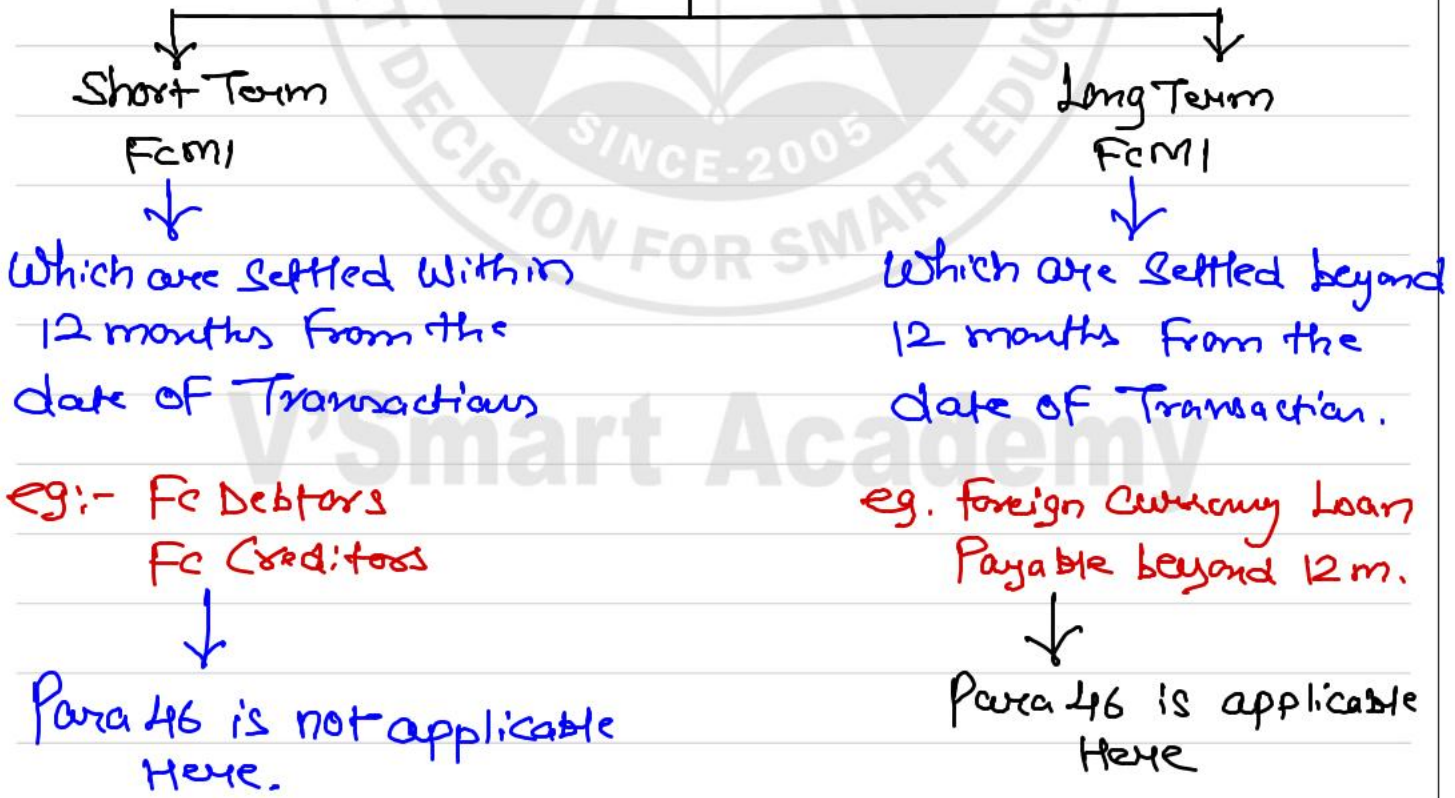 Short Term
FCMI
Which are Settled Within
12 months From the
date OF Transactions
eg:- FC Debtors
FC Creditors
Para 46 is not applicable
Here.
Long Term
FCMI
Which are Settled beyond
12 months From the
date of Transaction.
eg. Foreign Currency Loan
Payable beyond 12 m.
Para 46 is applicable
Here
DECISION FOR SMART
SINCE-2005
V'Smart Academy